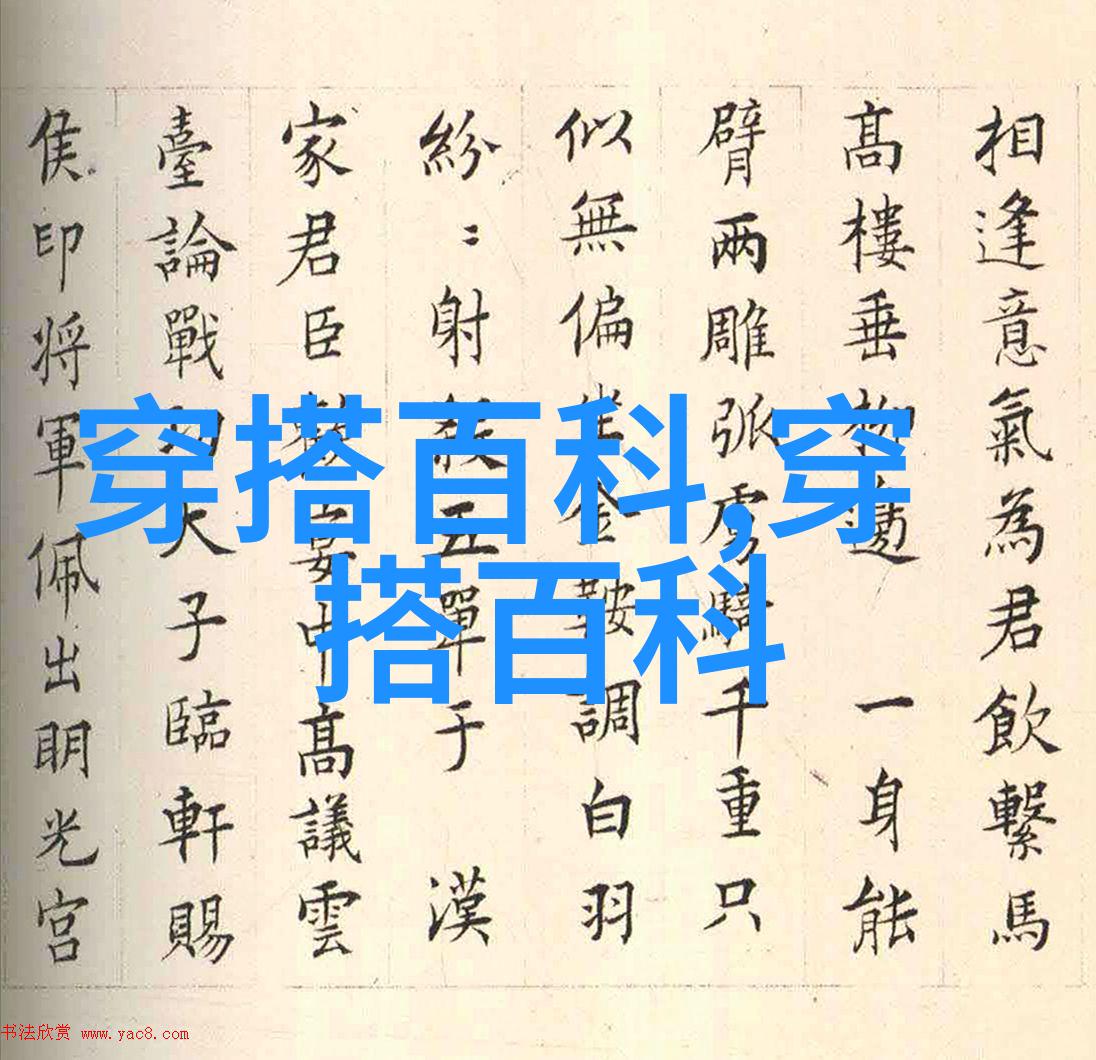 相逢意氣為君飲繫馬
髙樓垂柳邊 一身能
臂兩雕弧虜騎千重只
似無偏金鞍調白羽
紛〻射殺五單于 漢
家君臣宴中髙議雲
臺論戰功天子臨軒賜
侯印将軍佩出明光宮
穿搭百科,穿
搭百科
书法欣赏 www.yac8.com